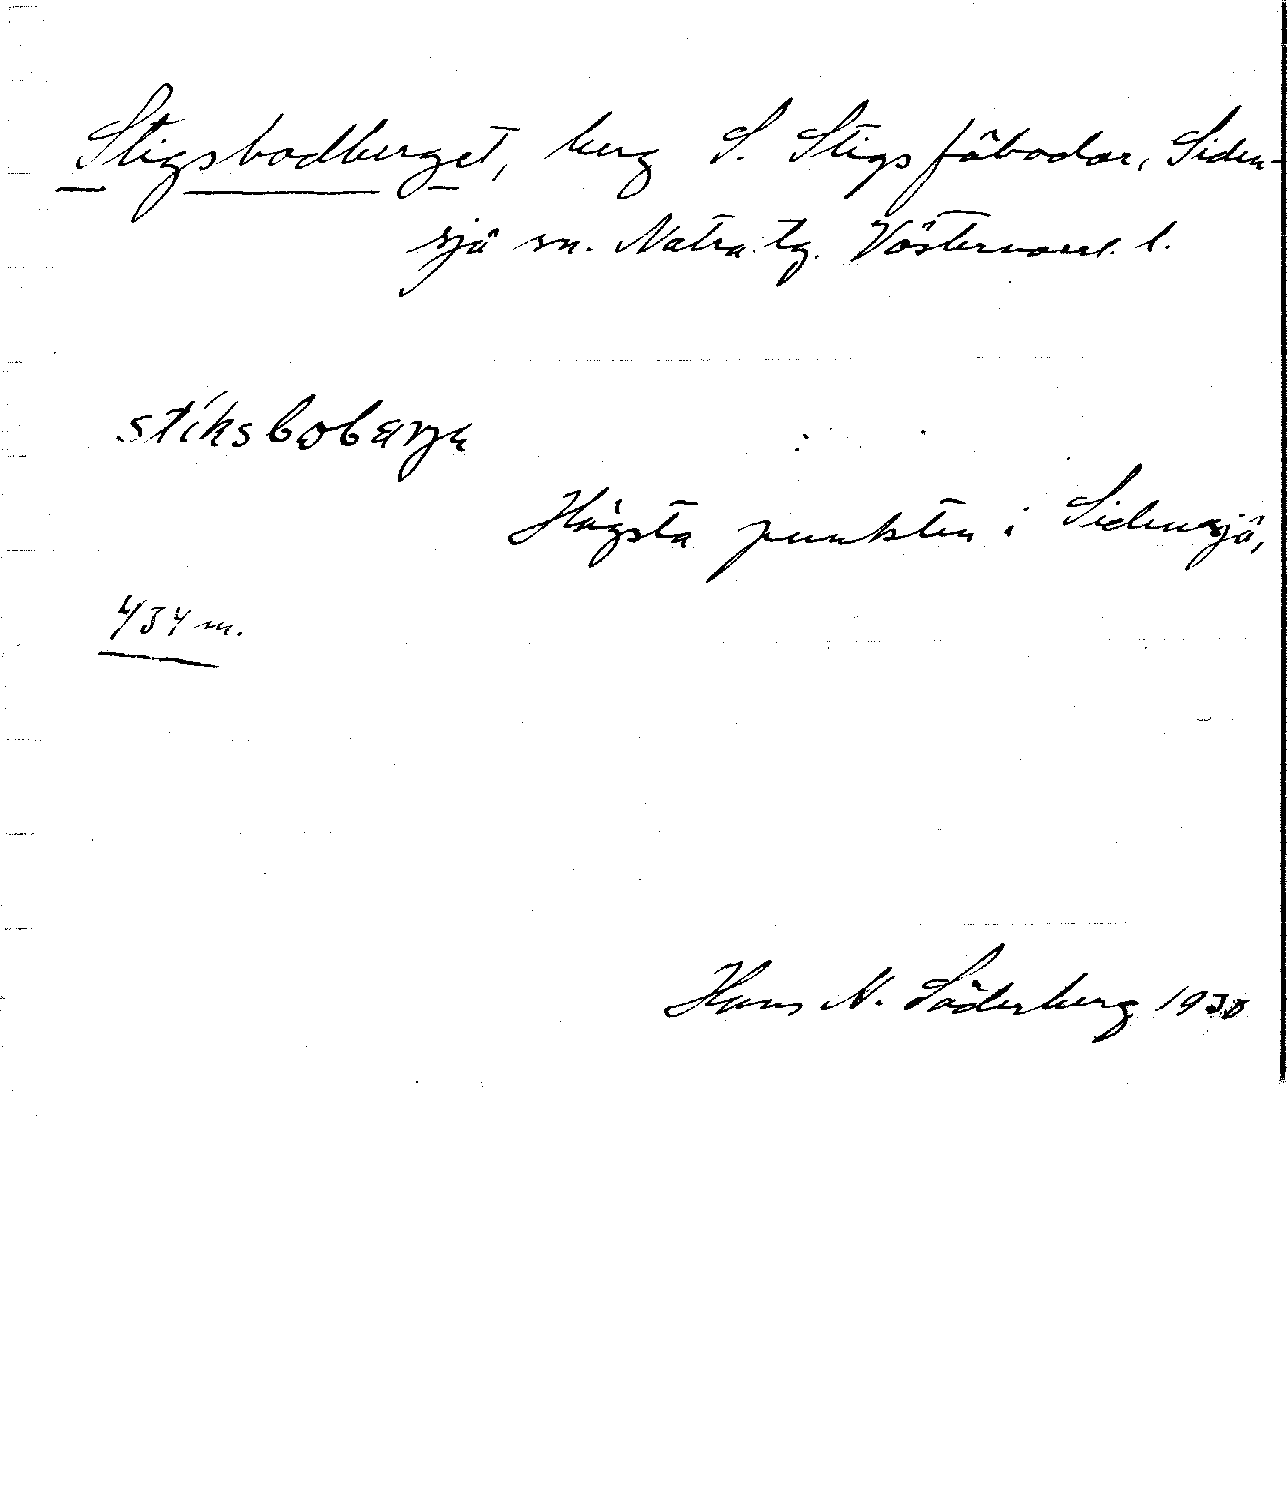 Stigsbodberget, berg S. Stigs fäbodar, Siden-
sjö sn. Nätra tg. Västernorrl. l.
stiksbobærja
Högsta punkten i Sidensjö,
434 m.
Hans N. Söderberg 1930